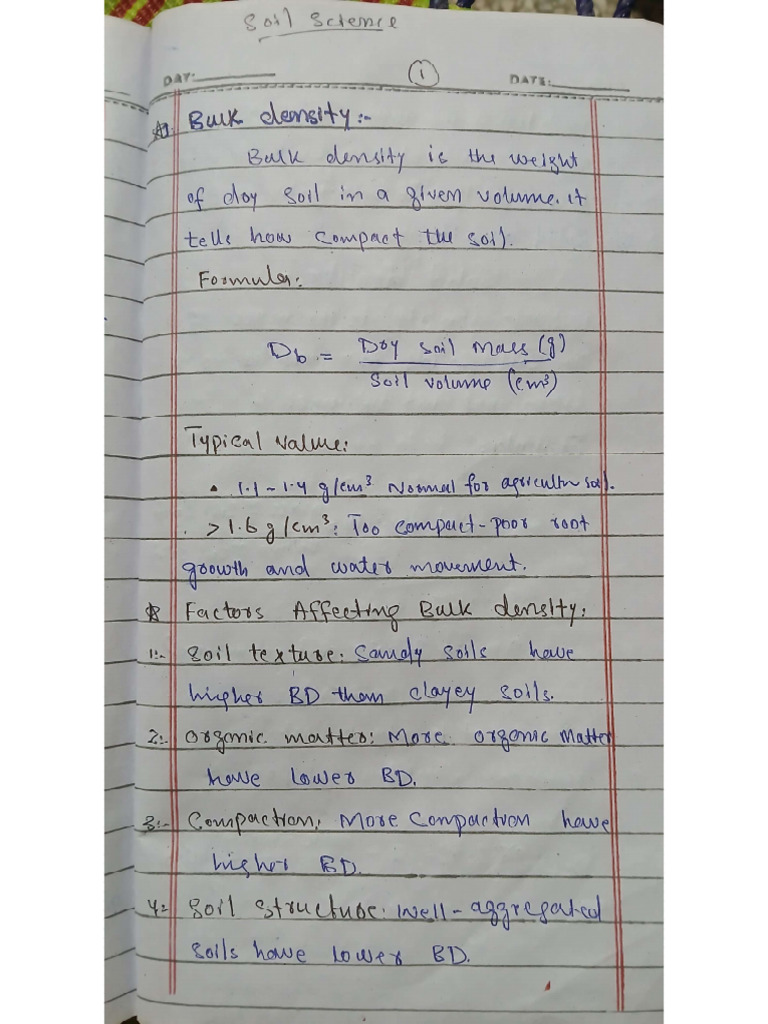 Soil Science
DAY: 1 DATE:
Bulk density:-
Bulk density is the weight
of dry soil in a given volume. it
tells how compact the soil.
Formula:
Db = Dry soil Mass (g)
Soil volume (cm³)
Typical value:
• 1.1 - 1.4 g/cm³ Normal for agricultur soil.
. > 1.6 g/cm³: Too compact - poor root
growth and water movement.
Factors Affecting Bulk density:
1:- Soil texture: Sandy soils have
higher BD than clayey soils.
2:- Organic matter: More organic Matter
have lower BD.
3:- Compaction: More Compaction have
higher BD.
4:- Soil structure: Well-aggregated
soils have lower BD.